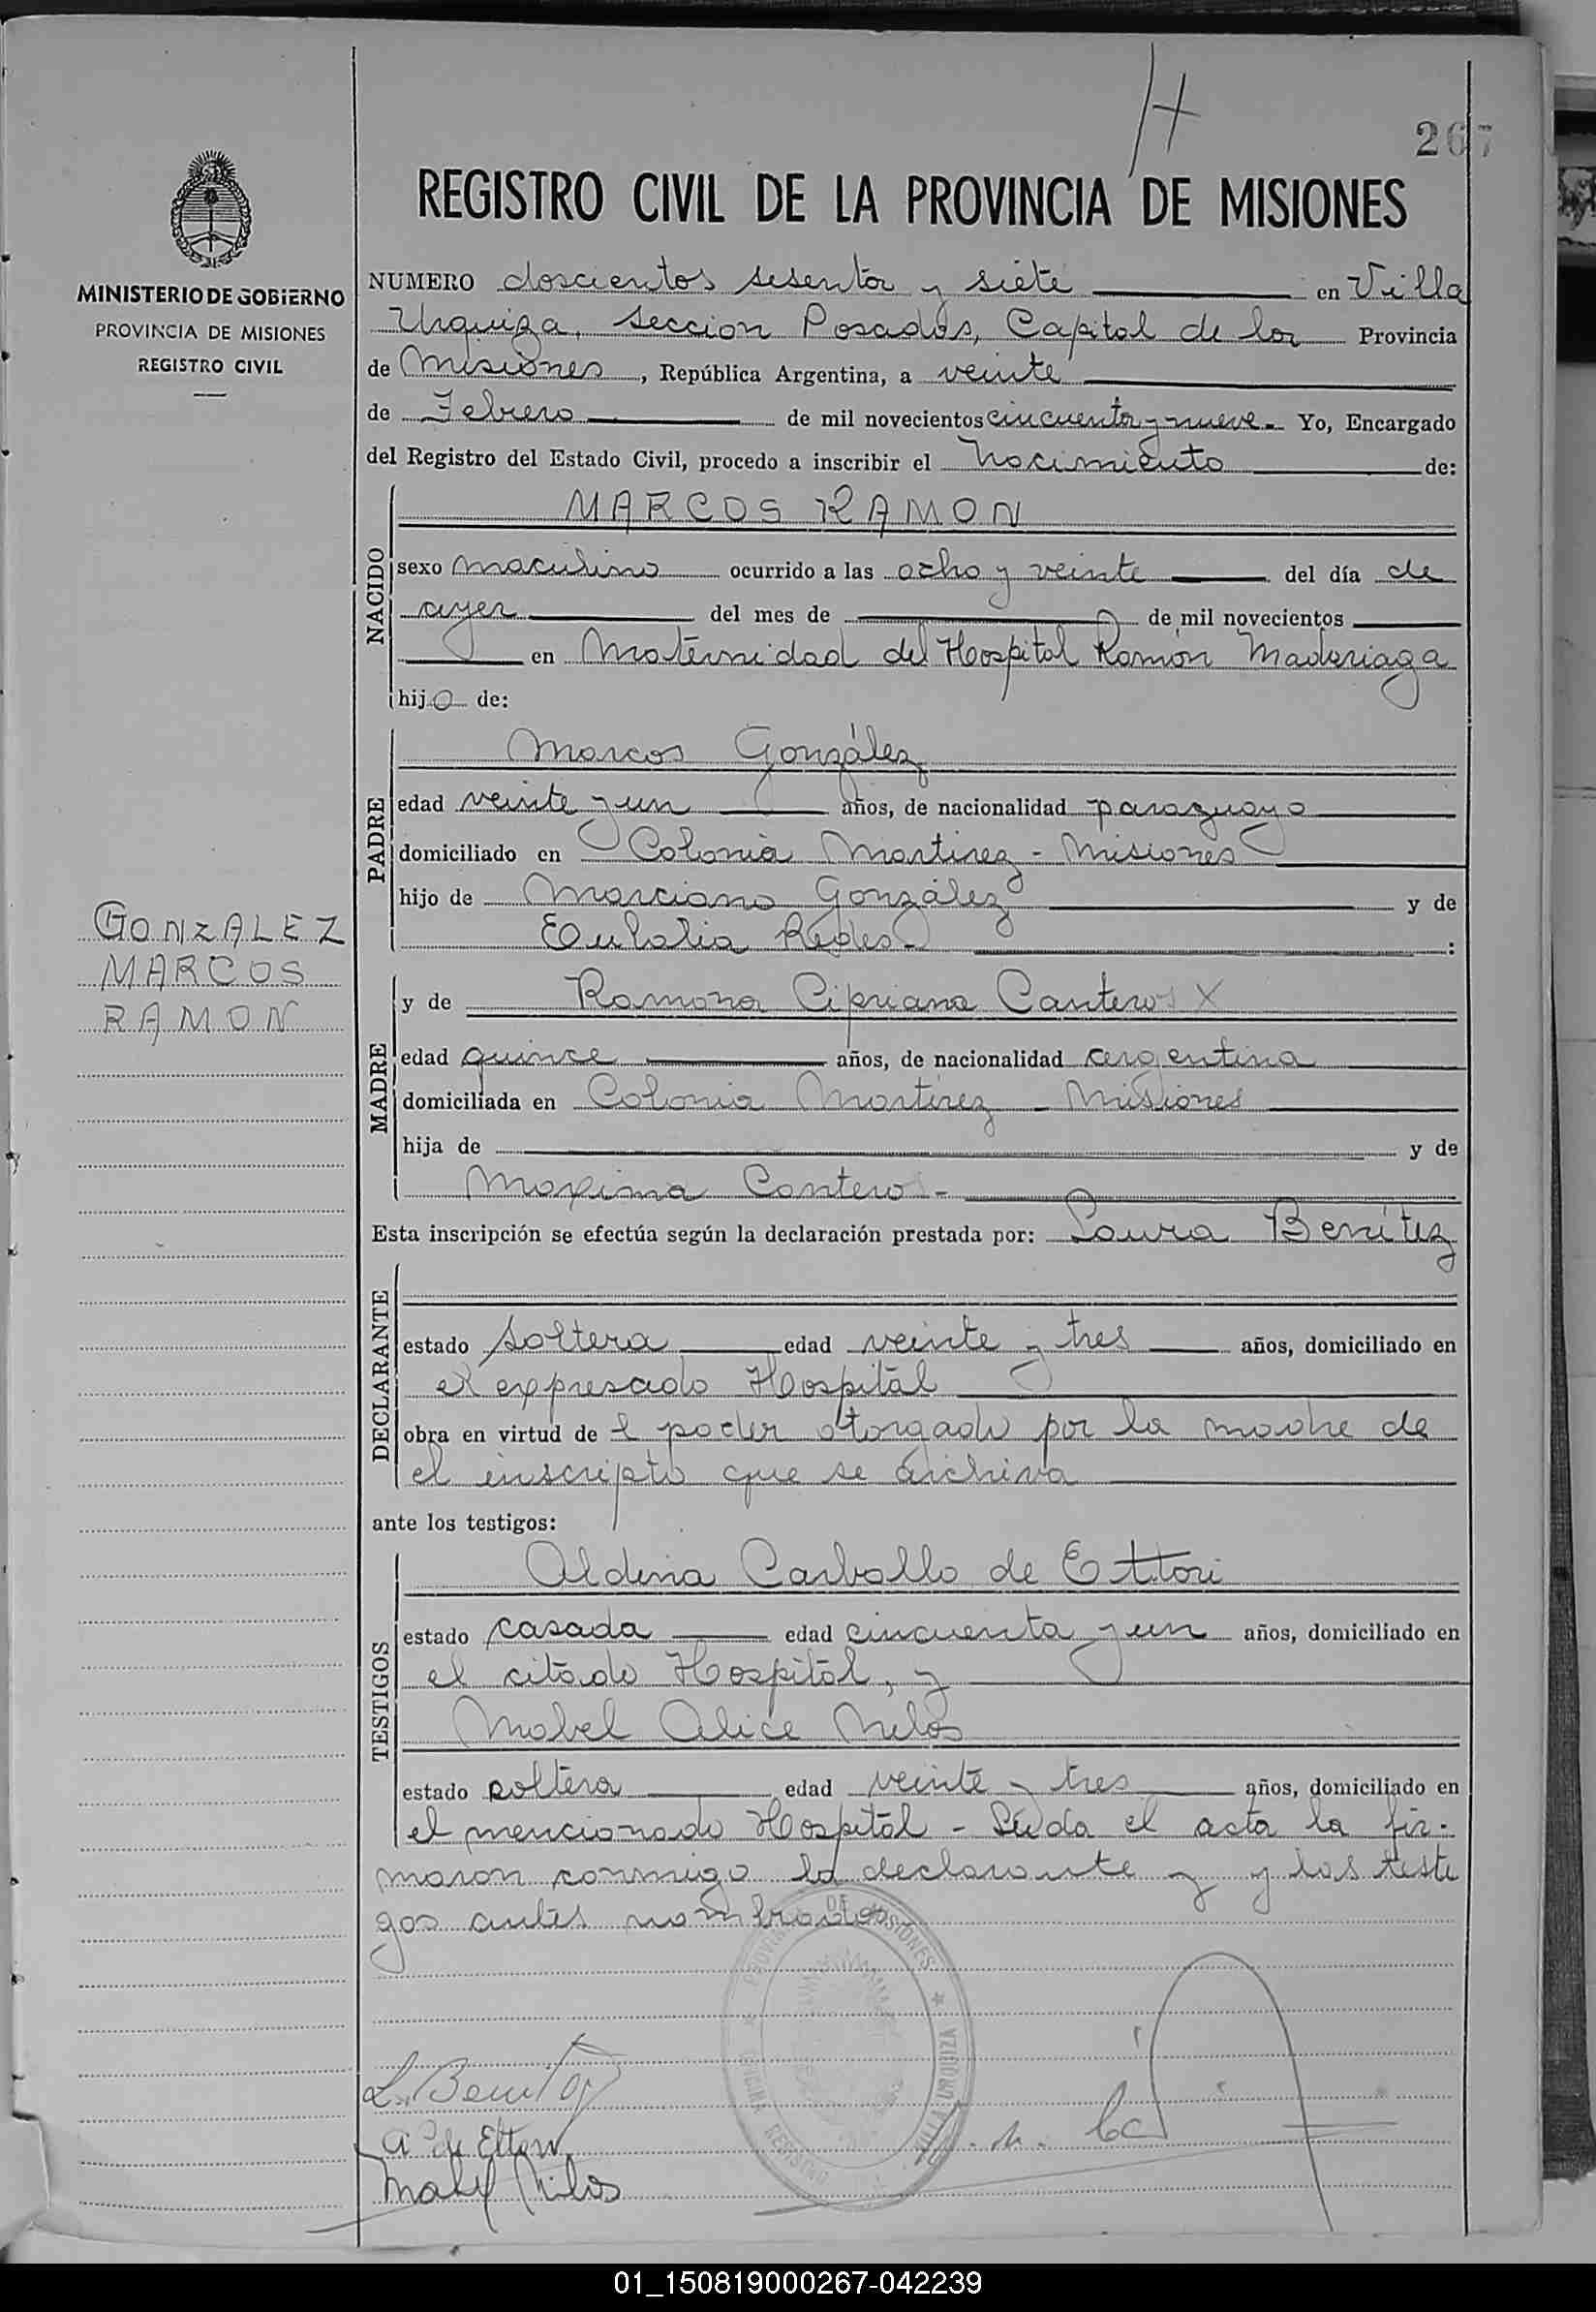 H
267
REGISTRO CIVIL DE LA PROVINCIA DE MISIONES
MINISTERIO DE GOBIERNO
PROVINCIA DE MISIONES
REGISTRO CIVIL
NUMERO doscientos sesenta y siete en Villa
Urquiza, seccion Posadas, Capital de la Provincia
de Misiones, República Argentina, a veinte
de Febrero de mil novecientos cincuenta y nueve. Yo, Encargado
del Registro del Estado Civil, procedo a inscribir el Nacimiento de:
NACIDO
MARCOS RAMON
sexo masculino ocurrido a las ocho y veinte del día de
ayer del mes de de mil novecientos
en Maternidad del Hospital Ramón Madariaga
hijo de:
PADRE
Marcos González
edad veinte y un años, de nacionalidad paraguaya
domiciliado en Colonia Martinez - Misiones
hijo de Marciano González y de
Eulalia :
GONZALEZ
MARCOS
RAMON
MADRE
y de Ramona Cipriana Cantero X
edad quince años, de nacionalidad argentina
domiciliada en Colonia Martinez - Misiones
hija de y de
Maxima Cantero -
Esta inscripción se efectúa según la declaración prestada por: Laura Benítez
DECLARANTE
estado soltera edad veinte y tres años, domiciliado en
el expresado Hospital
obra en virtud de l poder otorgado por la madre de
el inscripto que se archiva
ante los testigos:
TESTIGOS
Aldina Carballo de Ettori
estado casada edad cincuenta y un años, domiciliado en
el citado Hospital, y
Mabel Alice Milos
estado soltera edad veinte y tres años, domiciliado en
el mencionado Hospital - Leída el acta la fir-
maron conmigo la declarante y y los testi
gos antes nombrados
PROVINCIA DE MISIONES * VILLA URQUIZA
OFICINA REGISTRO
L. Benitez
A. de Ettori
Mabel Milos
01_150819000267-042239